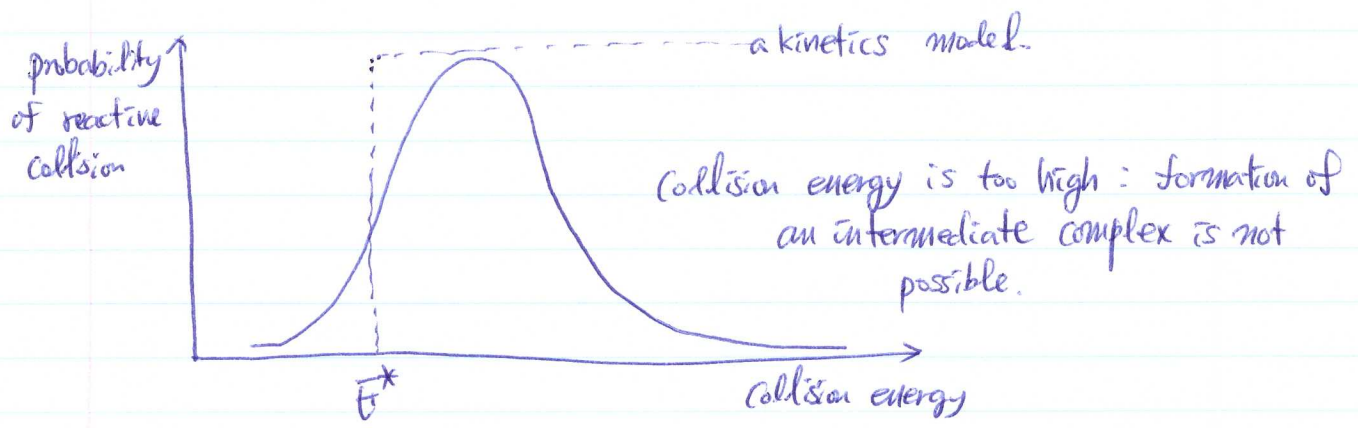 probability
of reactive
collision
a kinetics model.
Collision energy is too high : formation of
an intermediate complex is not
possible.
E*
Collision energy